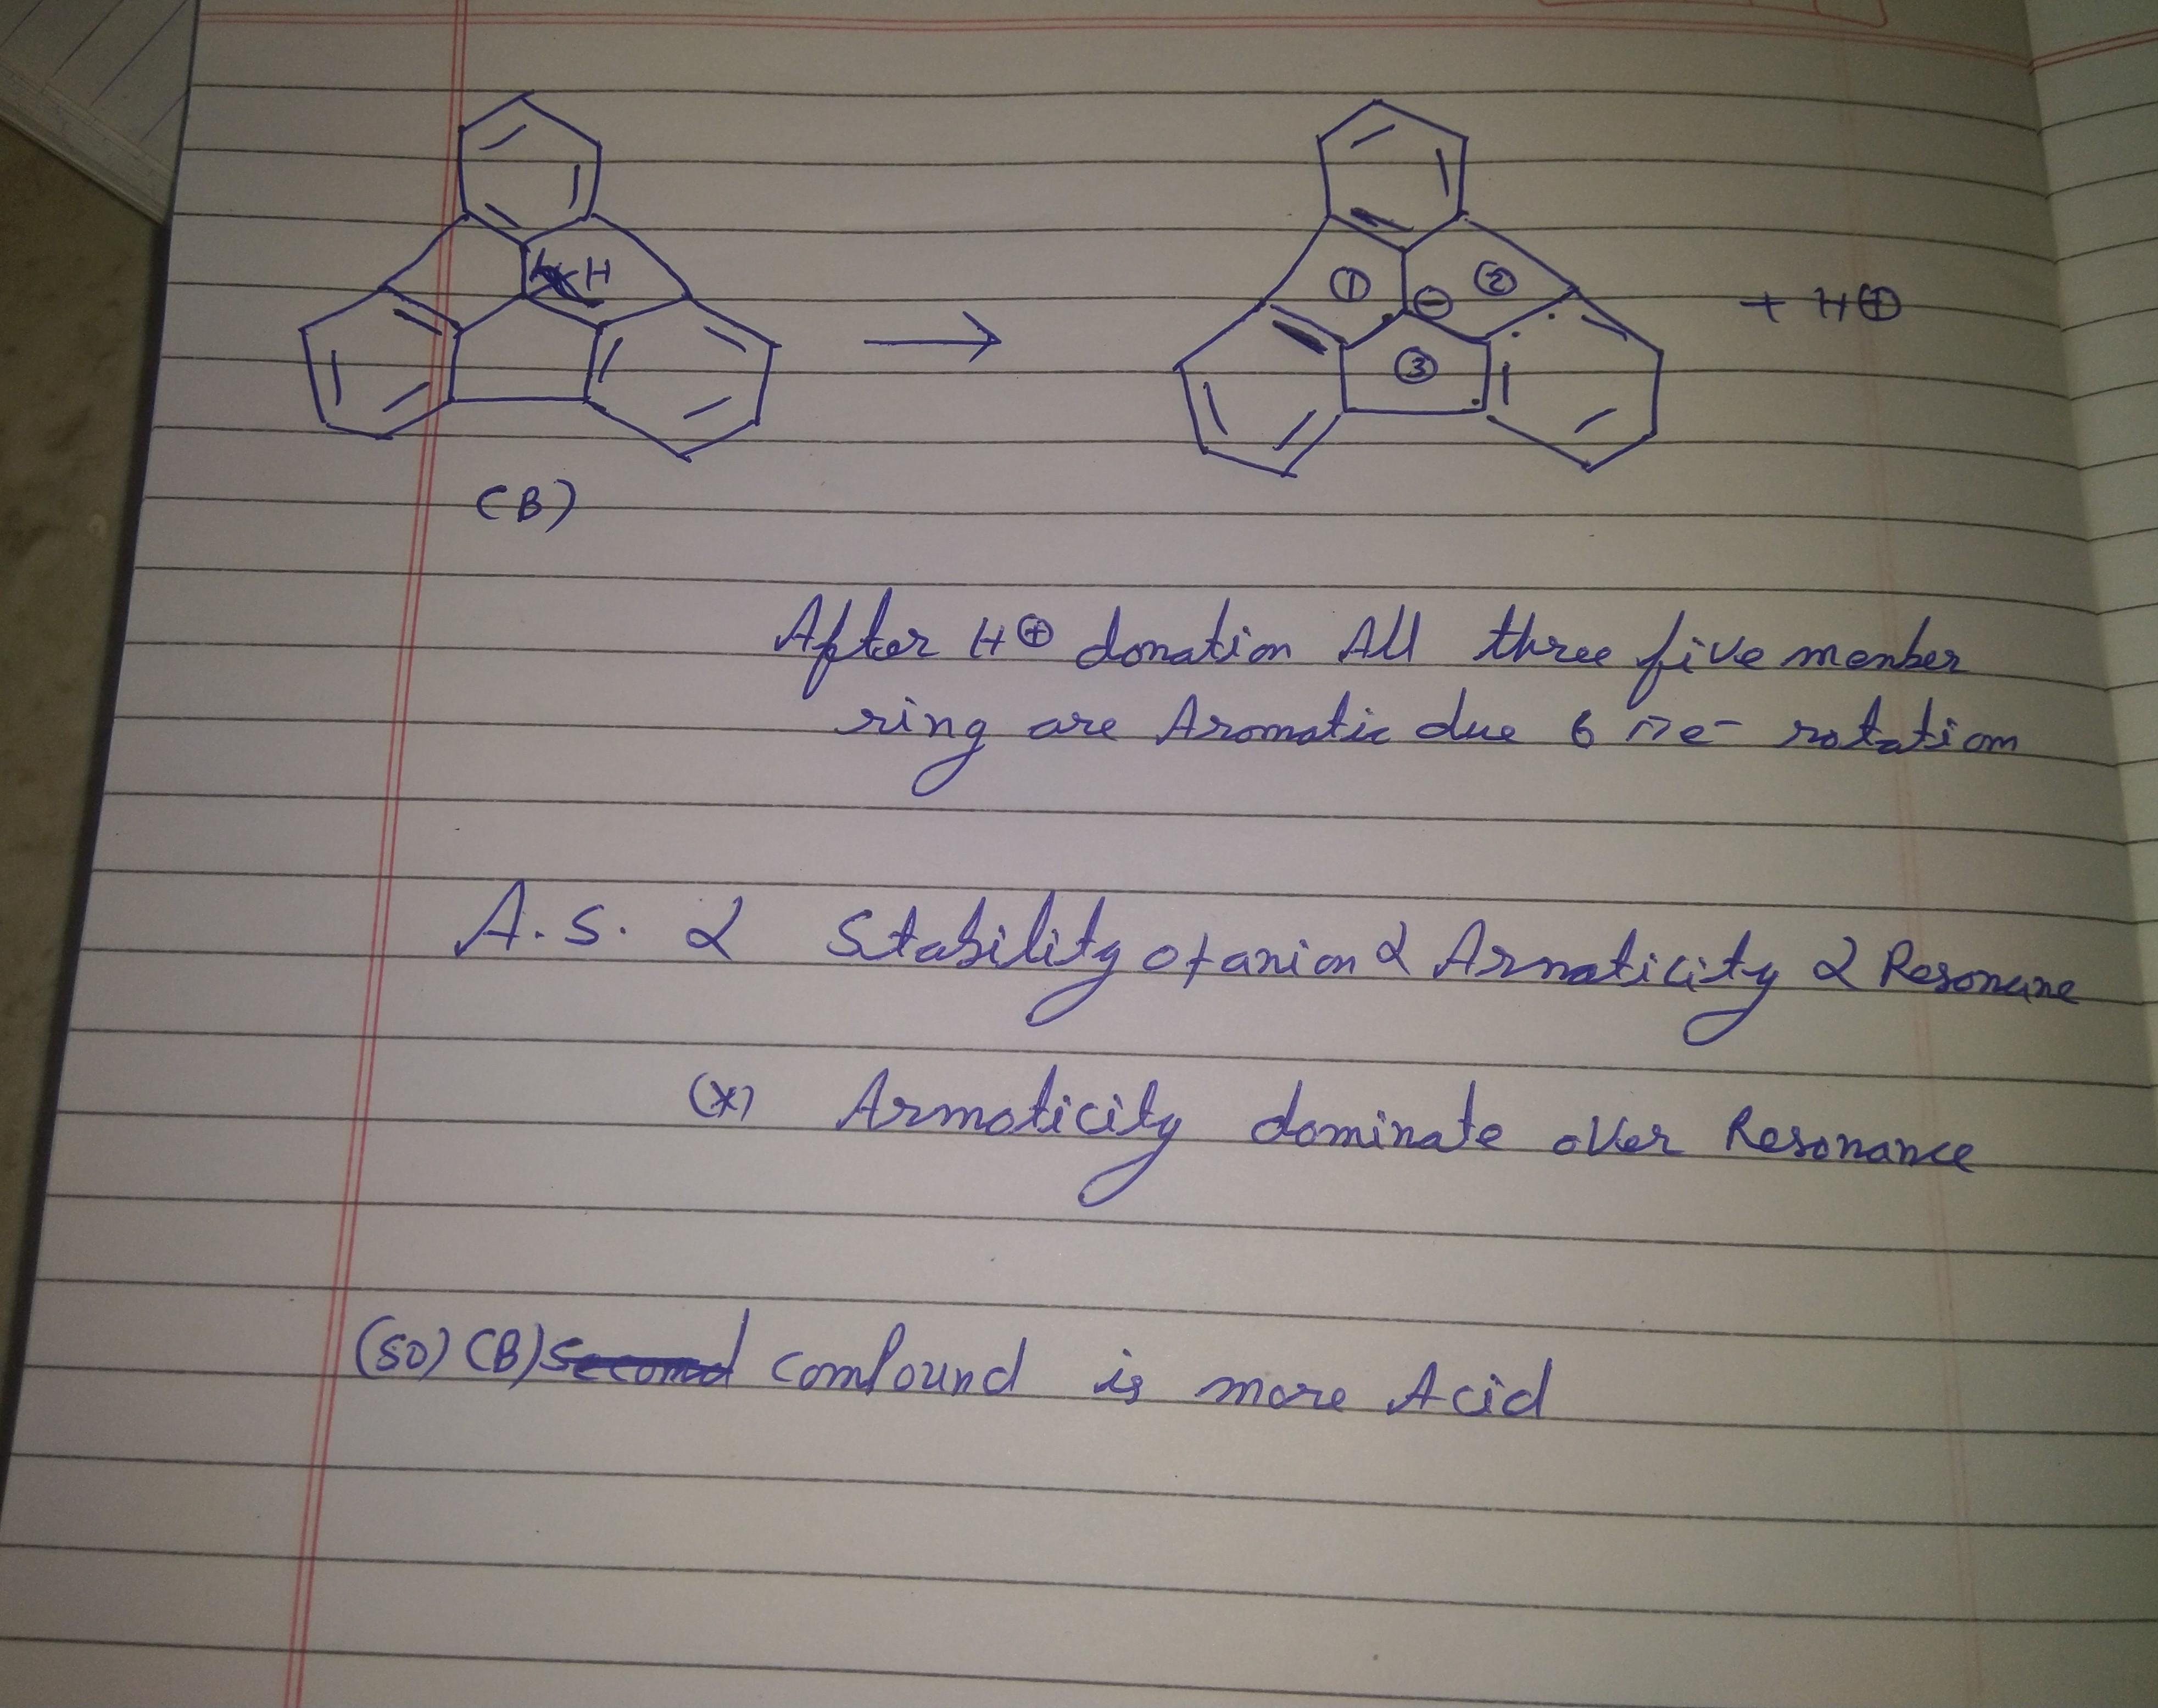 H
① ② ⊖ ③ + H⊕
(B)
After H⊕ donation All three five member
ring are Aromatic due 6 πe⁻ rotation
A.S. α Stability of anion α Armaticity α Resonane
(x) Armoticity dominate over Resonance
(so) (B) Second compound is more Acid